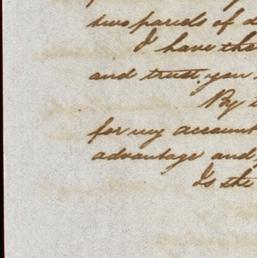 two parcels of d
I have the
and trust you
By t
for my account
advantage and
Is the